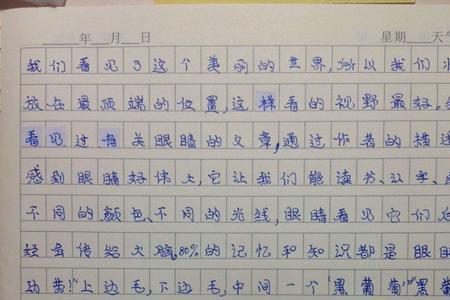 年 月 日 星期 天气
我们看见了这个美丽的世界,所以我们
放在最顶端的位置,这样看的视野最好。
看见过有关眼睛的文章,通过作者的描述
感到眼睛好伟大,它让我们能读书、认字、
不同的颜色、不同的光线,眼睛看见它们
经会传给大脑,80%的记忆和知识都是眼
劝劳!"上边毛,下边毛,中间一个"黑葡萄"